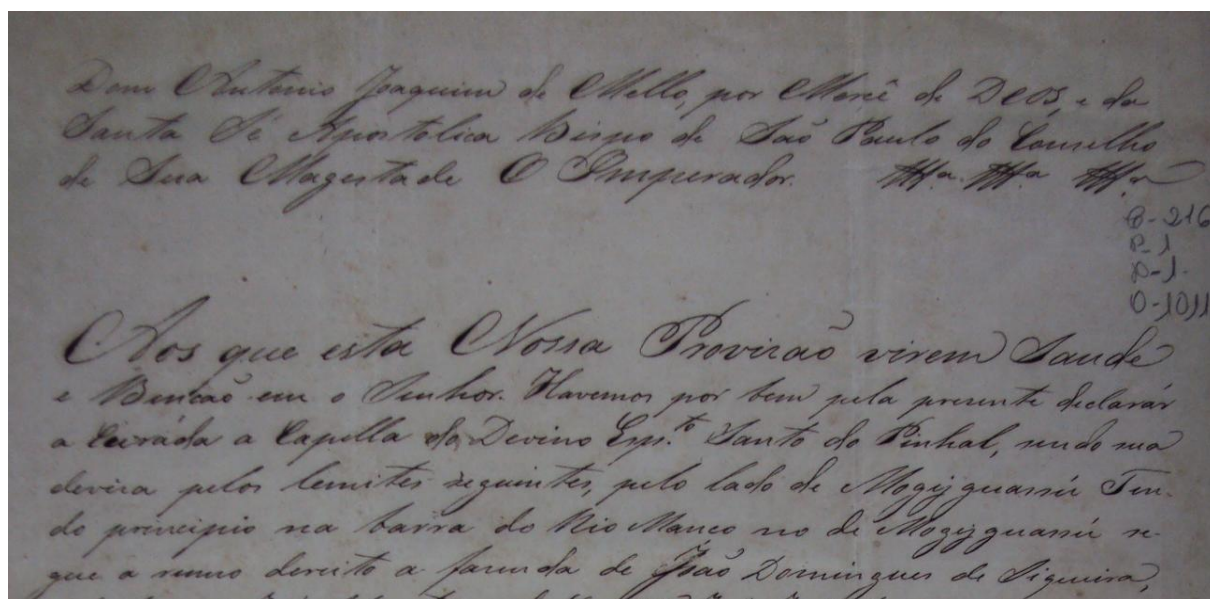 Dom Antonio Joaquim de Mello, por Mercê de DEOS, e da
Santa Sé Apostolica Bispo de São Paulo do Conselho
de Sua Magestade O Imperador.
C-216
P-1
D-1.
O-1011
Aos que esta Nossa Provizão virem Saude
e Bencão em o Senhor. Havemos por bem pela presente declarár
a Capella do Devino Esp.to Santo do Pinhal, sendo sua
deviza pelos lemites seguintes, pelo lado de Mogyguassú Ten-
do principio na barra do Rio Manco no de Mogyguassú se-
gue a rumo dereito a fazenda de João Domingues de Siqueira,